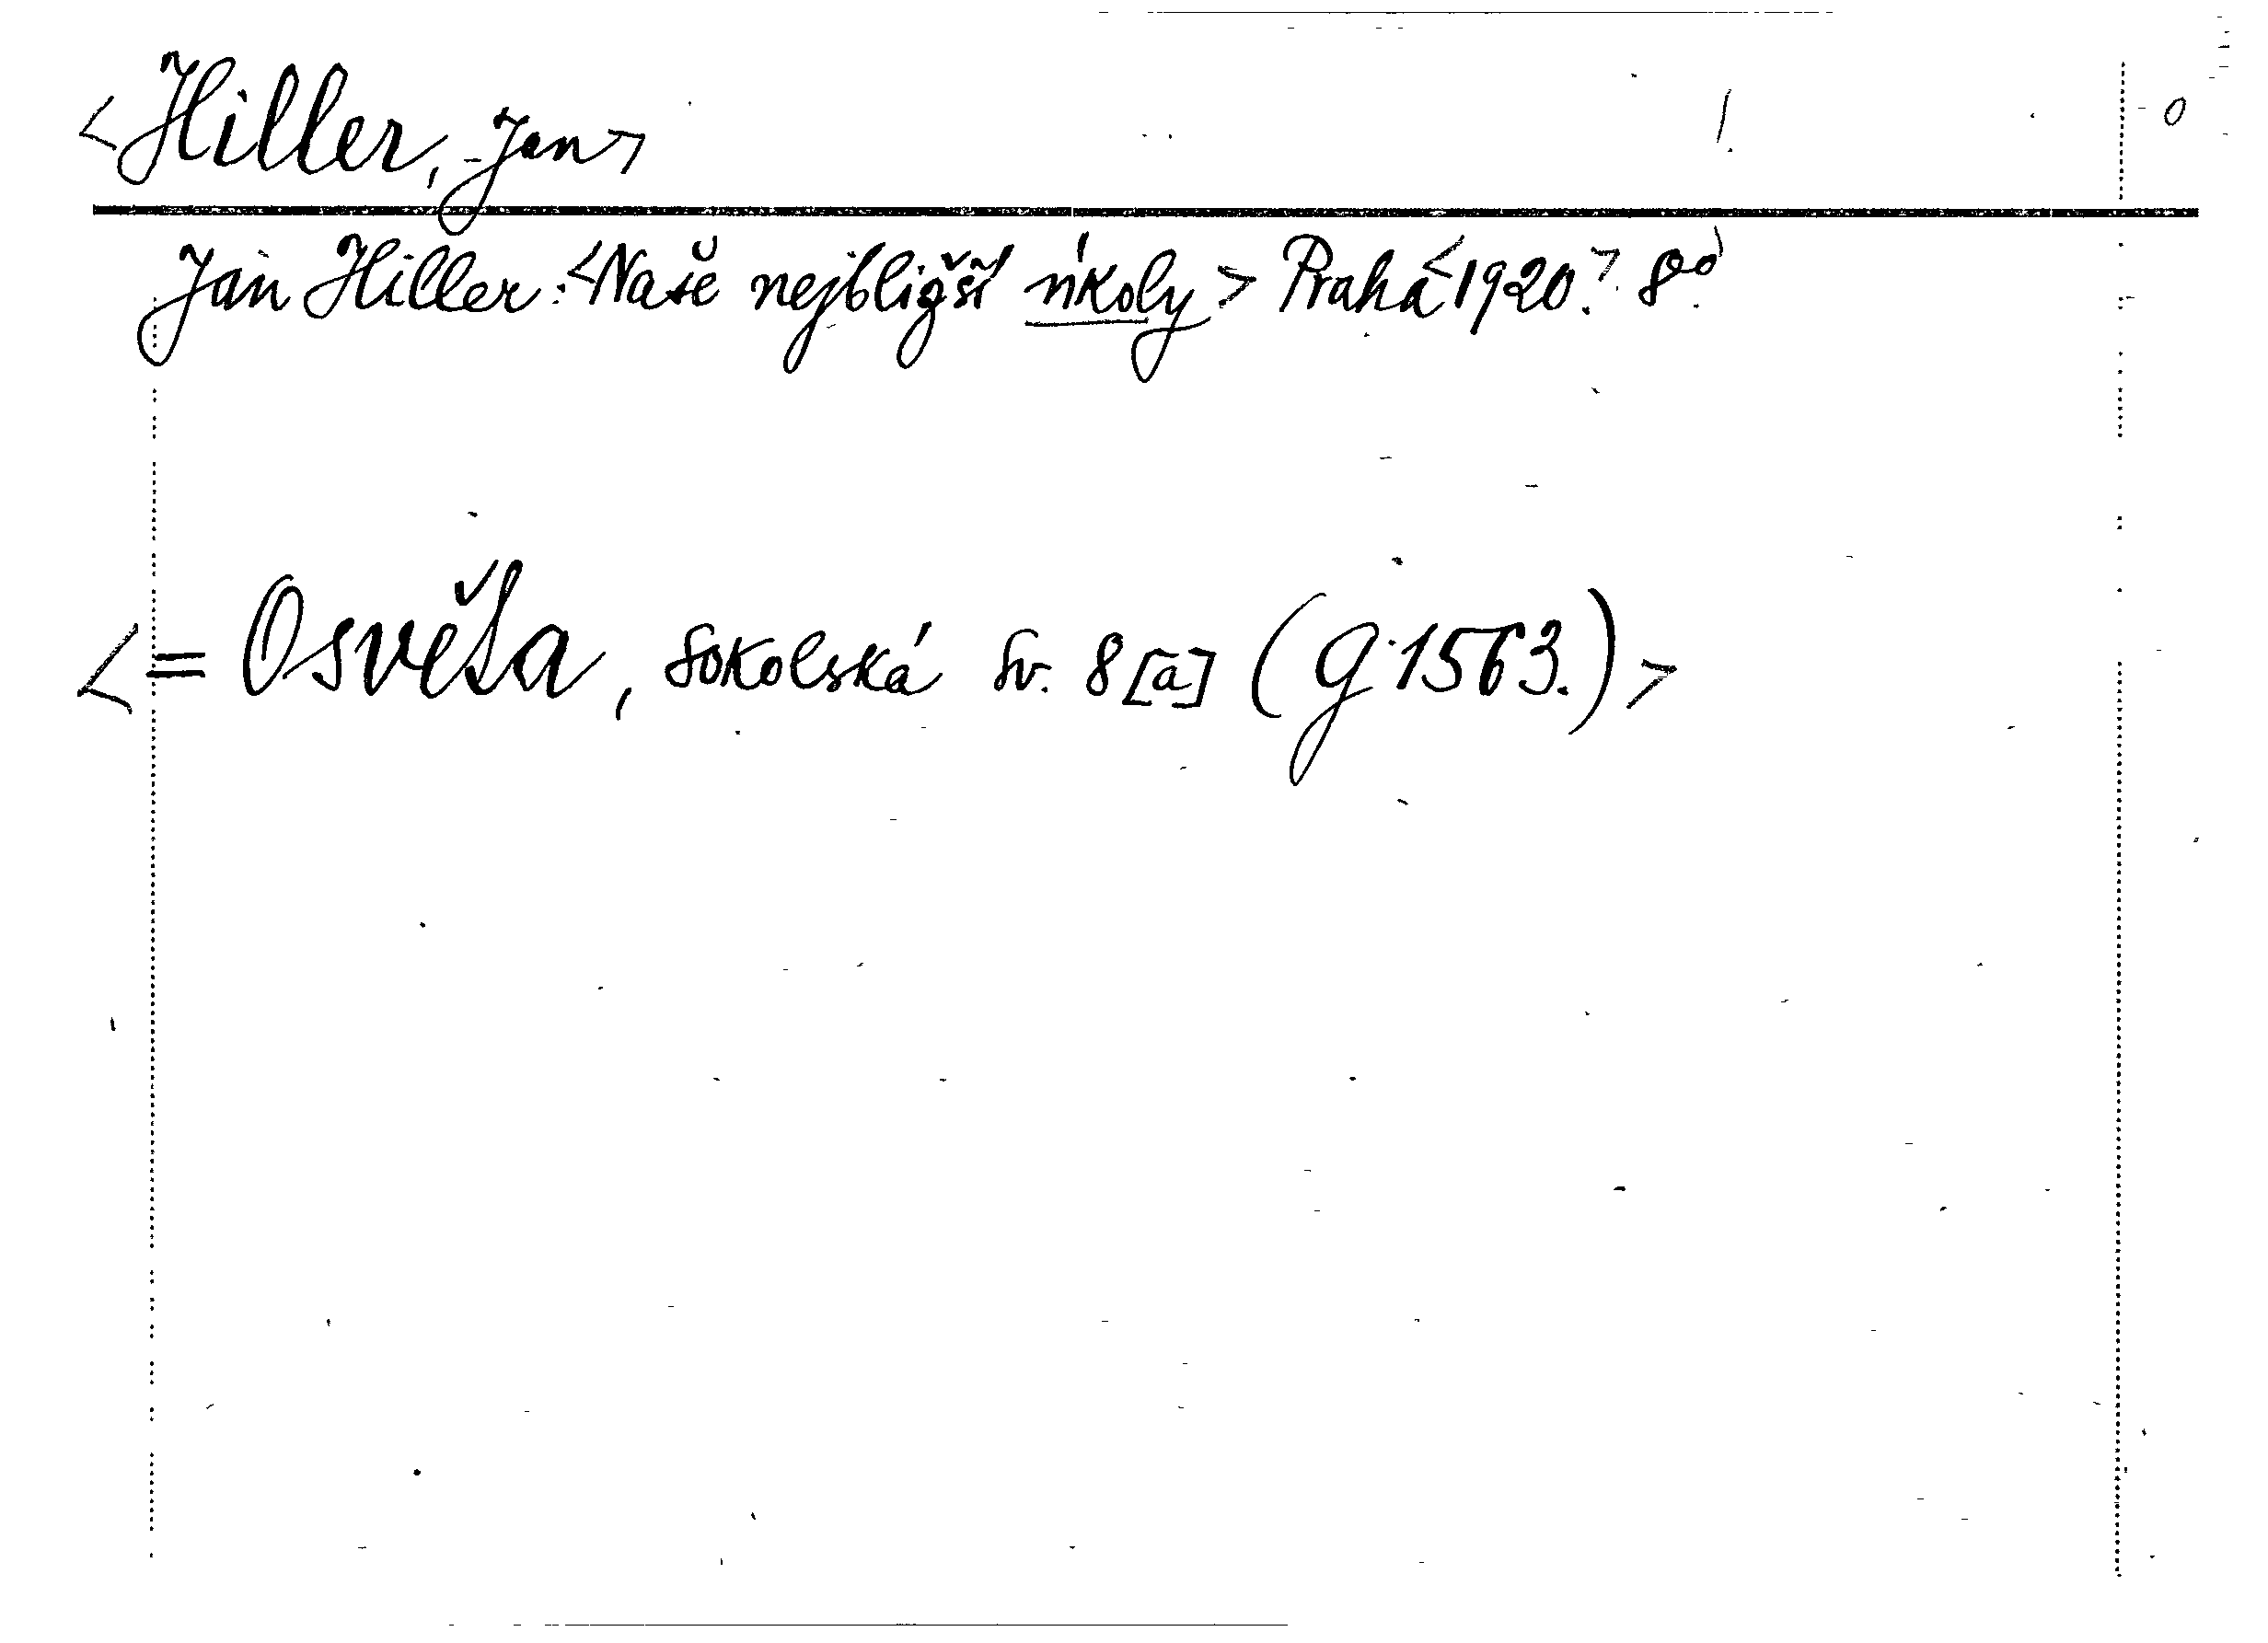 <Hiller, Jan>
Jan Hiller: <Naše nejbližší úkoly> Praha <1920.> 8°.
<= Osvěta, sokolská sv. 8 [a] (g 1563.)>